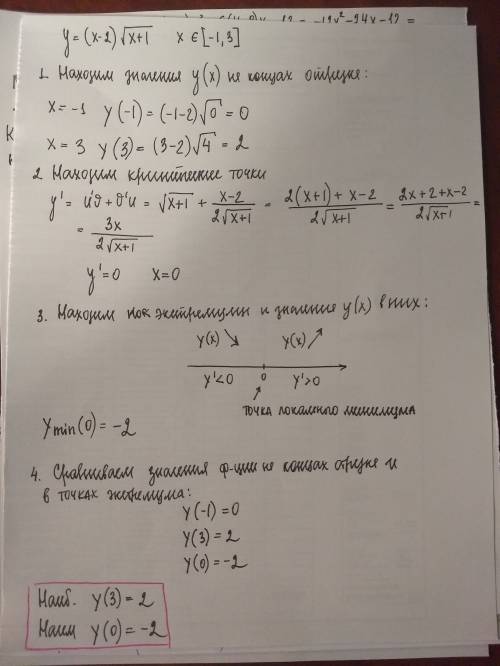 y = (x-2)√(x+1)   x ∈ [-1,3]
1. Находим значения y(x) на концах отрезка:
x = -1   y(-1) = (-1-2)√0 = 0
x = 3   y(3) = (3-2)√4 = 2
2. Находим критические точки
y' = u'υ + υ'u = √(x+1) + (x-2)/(2√(x+1)) = (2(x+1) + x-2)/(2√(x+1)) = (2x+2+x-2)/(2√(x+1)) =
= 3x/(2√(x+1))
y' = 0   x = 0
3. Находим лок экстремумы и значения y(x) в них:
y(x) ↘   y(x) ↗
y'<0   0   y'>0
точка локального минимума
y min (0) = -2
4. Сравниваем значения ф-ции на концах отрезка и
в точках экстремума:
y(-1) = 0
y(3) = 2
y(0) = -2
Наиб. y(3) = 2
Наим y(0) = -2